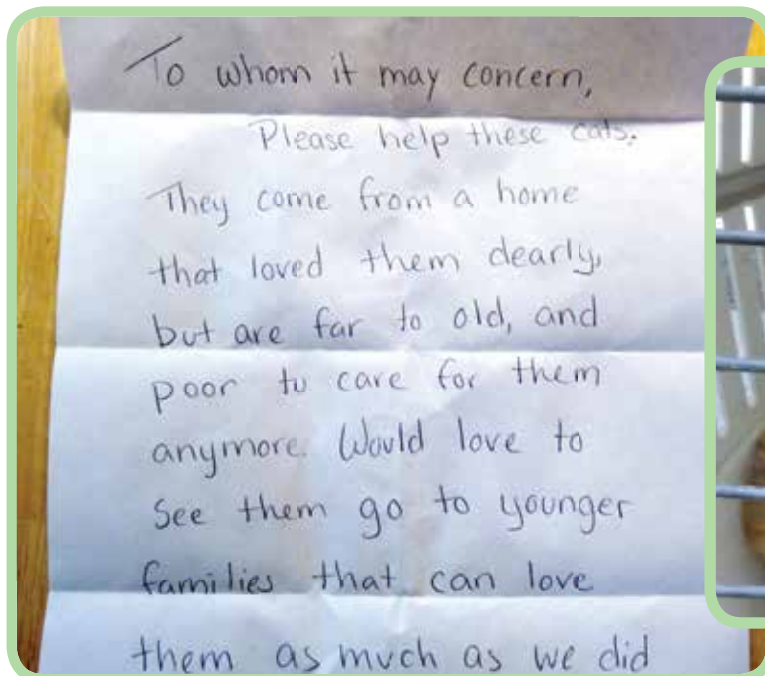 To whom it may concern,
Please help these cats.
They come from a home
that loved them dearly,
but are far to old, and
poor to care for them
anymore. Would love to
See them go to younger
families that can love
them as much as we did